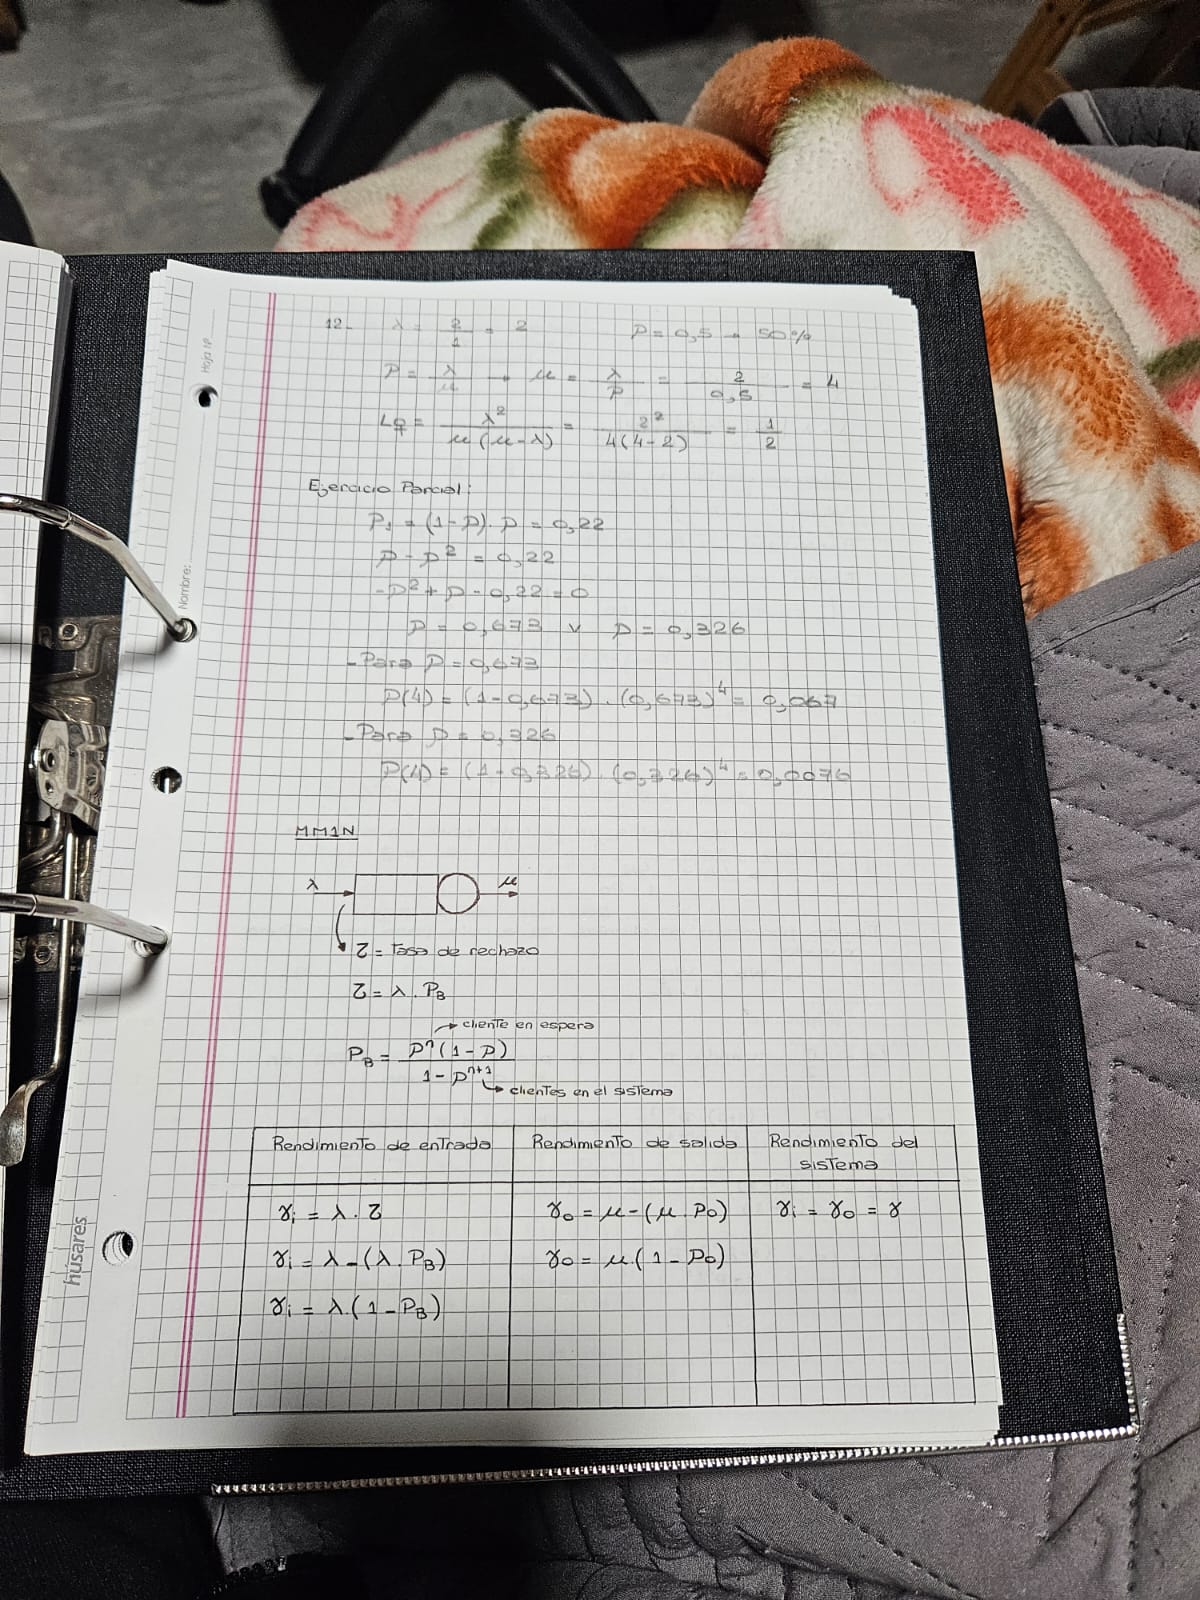 Hoja Nº
Nombre:
húsares
12- λ = 2/1 = 2    P = 0,5 → 50%
P = λ/μ → μ = λ/P = 2/0,5 = 4
Lq = λ²/μ(μ-λ) = 2²/4(4-2) = 1/2
Ejercicio Parcial:
P₁ = (1-P).P = 0,22
P - P² = 0,22
-P² + P - 0,22 = 0
P = 0,673 v P = 0,326
-Para P = 0,673
P(4) = (1-0,673).(0,673)⁴ = 0,067
-Para P = 0,326
P(4) = (1-0,326).(0,326)⁴ = 0,0076
MM1N
λ    μ
Z = Tasa de rechazo
Z = λ.P_B
cliente en espera
P_B = Pⁿ(1-P)/1-Pⁿ⁺¹
clientes en el sistema
Rendimiento de entrada    Rendimiento de salida    Rendimiento del sistema
γi = λ.Z    γo = μ-(μ.Po)    γi = γo = γ
γi = λ-(λ.P_B)    γo = μ.(1-Po)
γi = λ.(1-P_B)